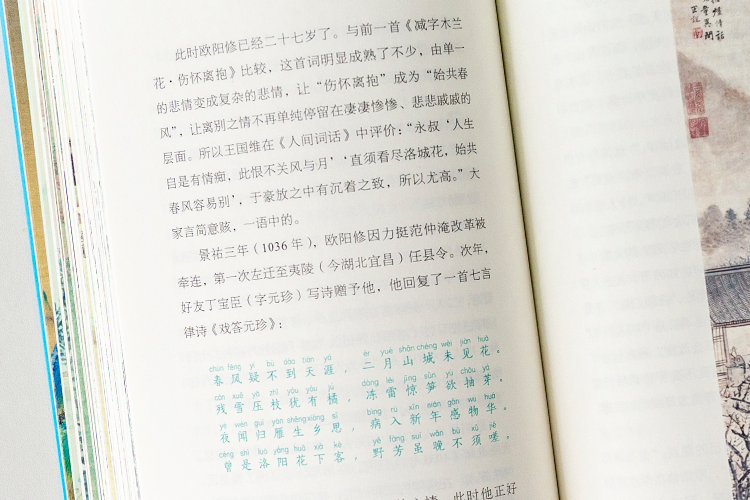 此时欧阳修已经二十七岁了。与前一首《减字木兰
花·伤怀离抱》比较，这首词明显成熟了不少，由单一
的悲情变成复杂的悲情，让“伤怀离抱”成为“始共春
风”，让离别之情不再单纯停留在凄凄惨惨、悲悲戚戚的
层面。所以王国维在《人间词话》中评价：“永叔‘人生
自是有情痴，此恨不关风与月’‘直须看尽洛城花，始共
春风容易别’，于豪放之中有沉着之致，所以尤高。”大
家言简意赅，一语中的。
景祐三年（1036年），欧阳修因力挺范仲淹改革被
牵连，第一次左迁至夷陵（今湖北宜昌）任县令。次年，
好友丁宝臣（字元珍）写诗赠予他，他回复了一首七言
律诗《戏答元珍》：
chūn fēng yí bú dào tiān yá èr yuè shān chéng wèi jiàn huā
春风疑不到天涯，二月山城未见花。
cán xuě yā zhī yóu yǒu jú dòng léi jīng sǔn yù chōu yá
残雪压枝犹有橘，冻雷惊笋欲抽芽。
yè wén guī yàn shēng xiāng sī bìng rù xīn nián gǎn wù huá
夜闻归雁生乡思，病入新年感物华。
céng shì luò yáng huā xià kè yě fāng suī wǎn bù xū jiē
曾是洛阳花下客，野芳虽晚不须嗟。
此时他正好